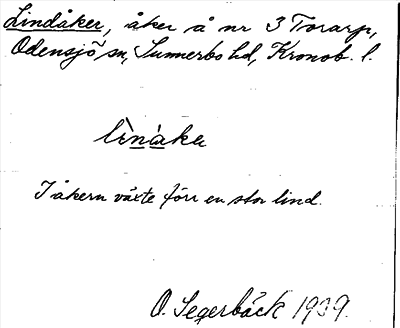 Lindåker, åker å nr 3 Torarp,
Odensjö sn, Sunnerbo hd, Kronob. l.
lìnàka
I åkern växte förr en stor lind.
O. Segerbäck 1909.